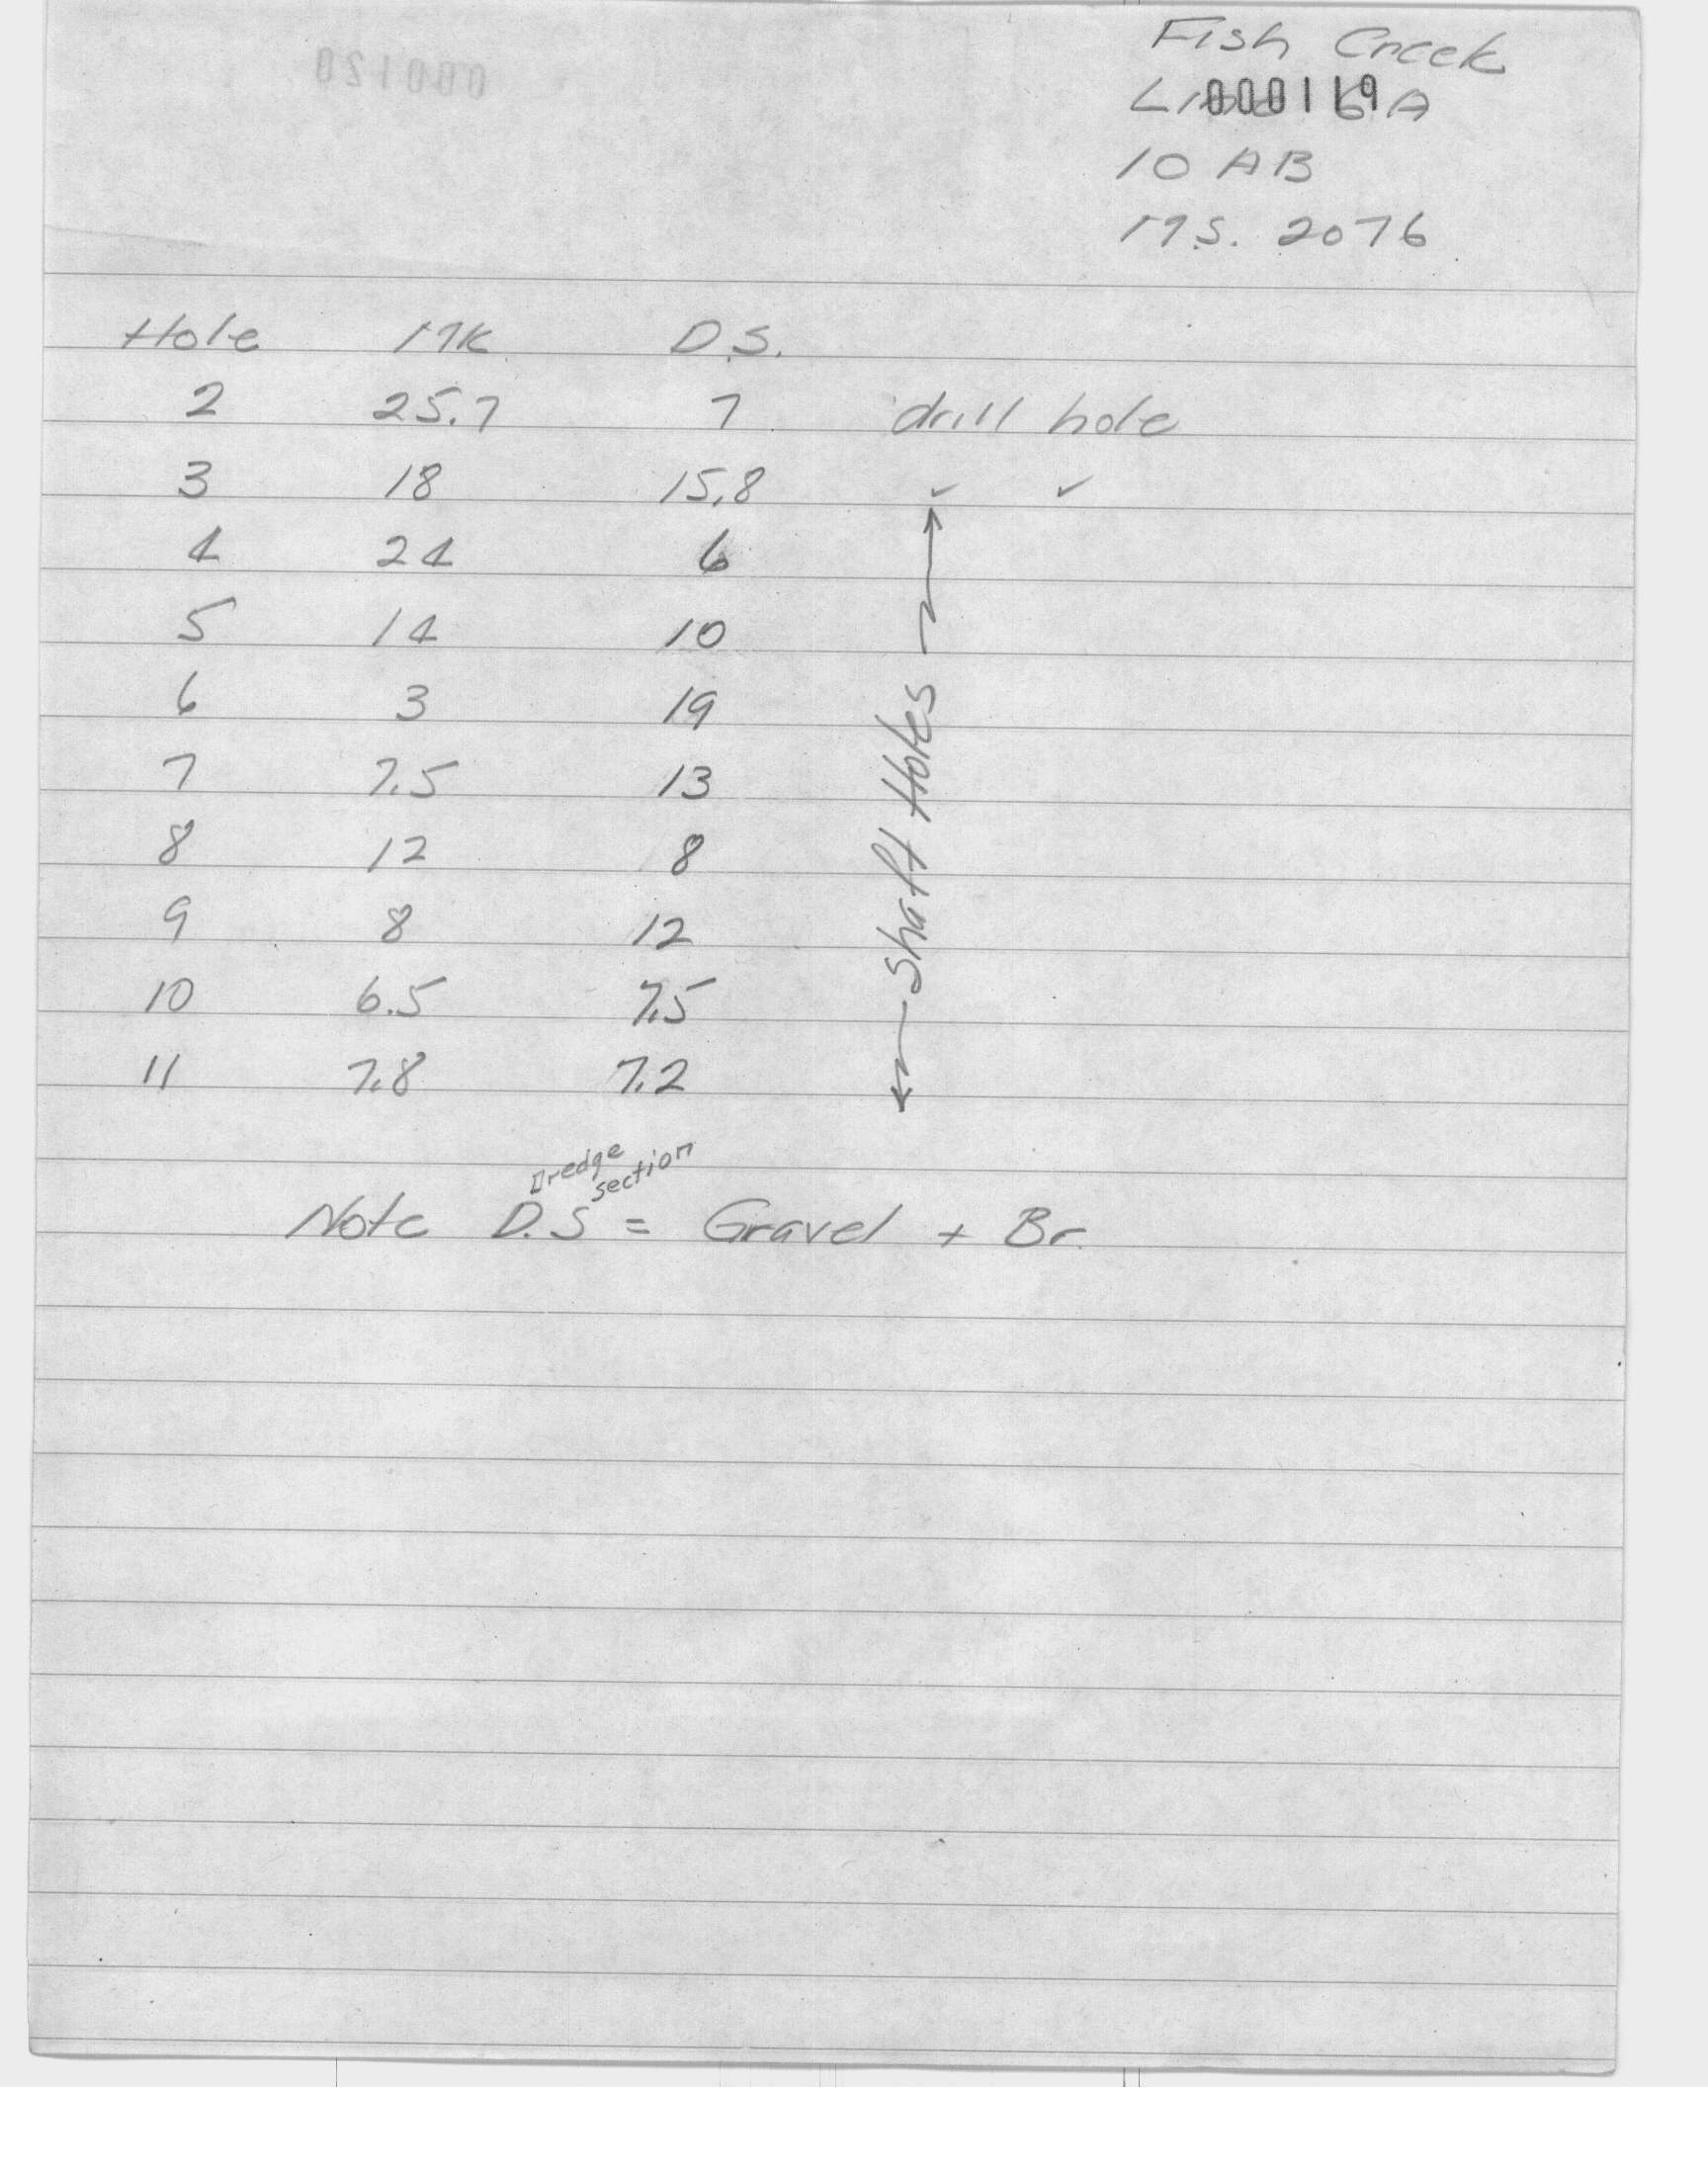 Fish Creek
Line 6A
000119
10 AB
M.S. 2076
000120
Hole MK D.S.
2 25.7 7 drill hole
3 18 15.8 ✓ ✓
4 24 6
5 14 10
6 3 19
7 7.5 13
8 12 8
9 8 12
10 6.5 7.5
11 7.8 7.2
Shaft Holes
Dredge section
Note D.S = Gravel + Br.